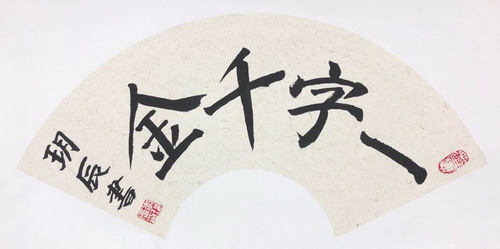 一字千金
玥辰書